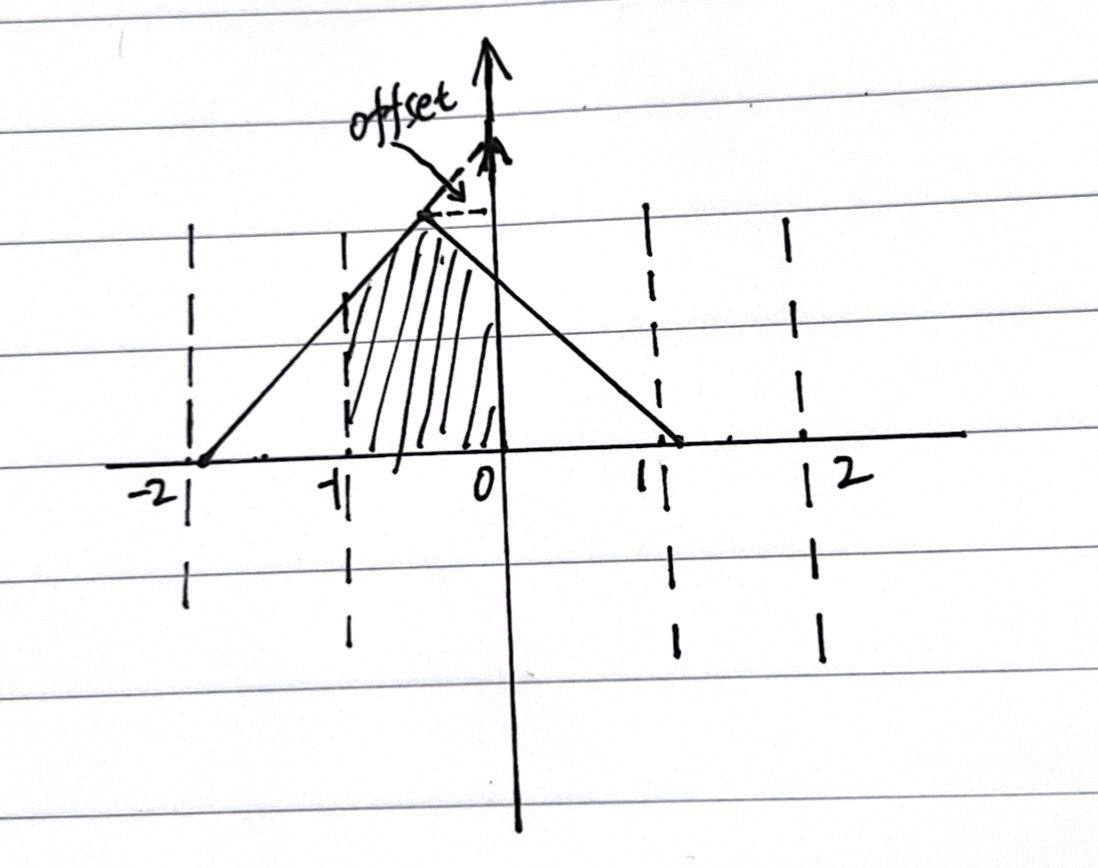 offset
-2 -1 0 1 2